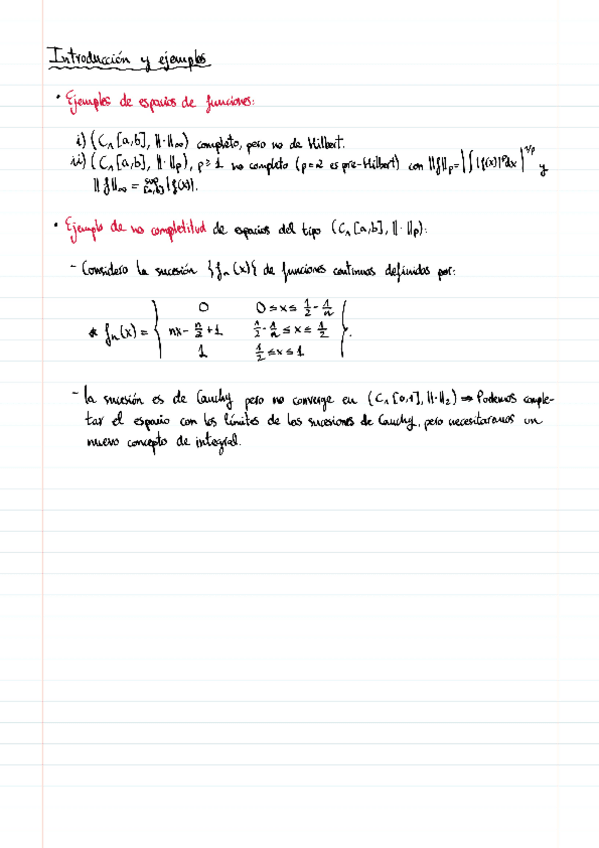 Introducción y ejemplos
· Ejemplos de espacios de funciones:
i) (C₁[a,b], ||·||∞) completo, pero no de Hilbert.
ii) (C₁[a,b], ||·||p), p≥1 no completo (p=2 es pre-Hilbert) con ||f||p = |∫|f(x)|ᵖdx|^1/p y
||f||∞ = sup[a,b] |f(x)|.
· Ejemplo de no completitud de espacios del tipo (C₁[a,b], ||·||p):
- Considero la sucesión {fₙ(x)} de funciones continuas definidas por:
0 0≤x≤ 1/2 - 1/n
* fₙ(x) = { nx - n/2 + 1 1/2 - 1/n ≤ x ≤ 1/2 }.
1 1/2 ≤x≤1
- La sucesión es de Cauchy pero no converge en (C₁[0,1], ||·||₂) ⇒ Podemos comple-
tar el espacio con los límites de las sucesiones de Cauchy, pero necesitaremos un
nuevo concepto de integral.